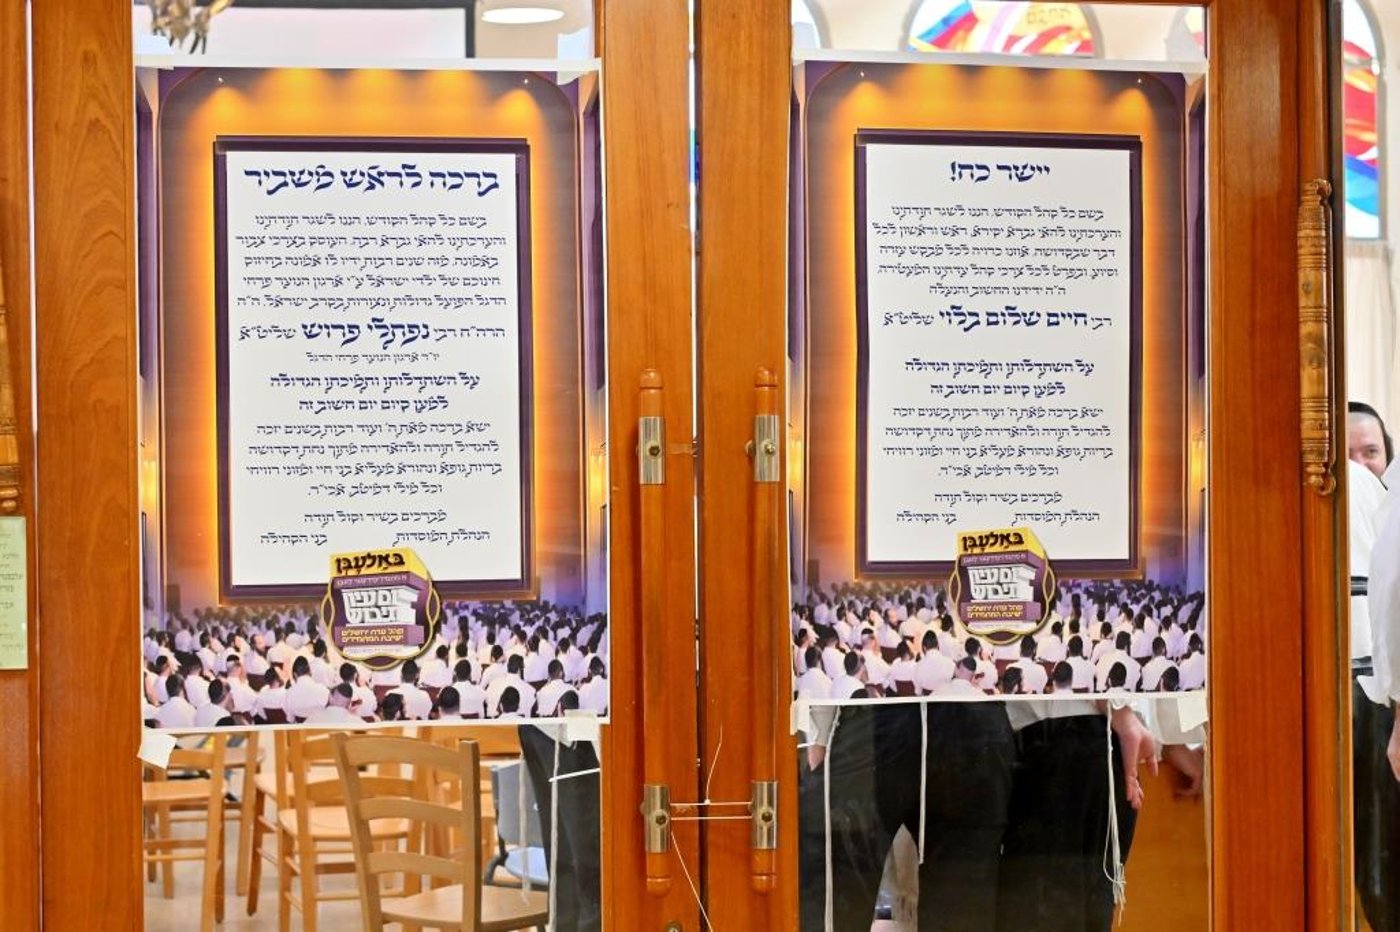 ברכה לראש משביר
בשם כל קהל הקודש, הננו לשגר תודתינו
והערכתינו להאי גברא רבה, העוסק בצרכי צבור
באמונה, מזה שנים רבות ידיו לו אמונה בחיזוק
חינוכם של ילדי ישראל ע"י ארגון הנוער פרחי
הדגל הפועל גדולות ונצורות בקרב ישראל, ה"ה
הרה"ח רבי נפתלי פרוש שליט"א
יו"ר ארגון הנוער פרחי הדגל
על השתדלותו ותמיכתו הגדולה
למען קיום יום חשוב זה
ישא ברכה מאת ה' ועוד רבות בשנים יזכה
להגדיל תורה ולהאדירה מתוך נחת דקדושה
בריות גופא ונהורא מעליא בני חיי ומזוני רוויחי
וכל מילי דמיטב, אכי"ר.
מברכים בשיר וקול תודה
הנהלת המוסדות, בני הקהילה
באלעבן
ומעין
תיבש
קהל עדת ירושלים
ישיבת המתמידים
יישר כח!
בשם כל קהל הקודש, הננו לשגר תודתינו
והערכתינו להאי גברא יקירא, ראש וראשון לכל
דבר שבקדושה, אוזנו כרויה לכל מבקש עזרה
וסיוע, ובפרט לכל צרכי קהל עדתינו המעטירה,
ה"ה ידידנו החשוב והנעלה
רבי חיים שלום בלוי שליט"א
על השתדלותו ותמיכתו הגדולה
למען קיום יום חשוב זה
ישא ברכה מאת ה' ועוד רבות בשנים יזכה
להגדיל תורה ולהאדירה מתוך נחת דקדושה
בריות גופא ונהורא מעליא בני חיי ומזוני רוויחי
וכל מילי דמיטב, אכי"ר.
מברכים בשיר וקול תודה
הנהלת המוסדות, בני הקהילה
באלעבן
ומעין
תיבש
קהל עדת ירושלים
ישיבת המתמידים